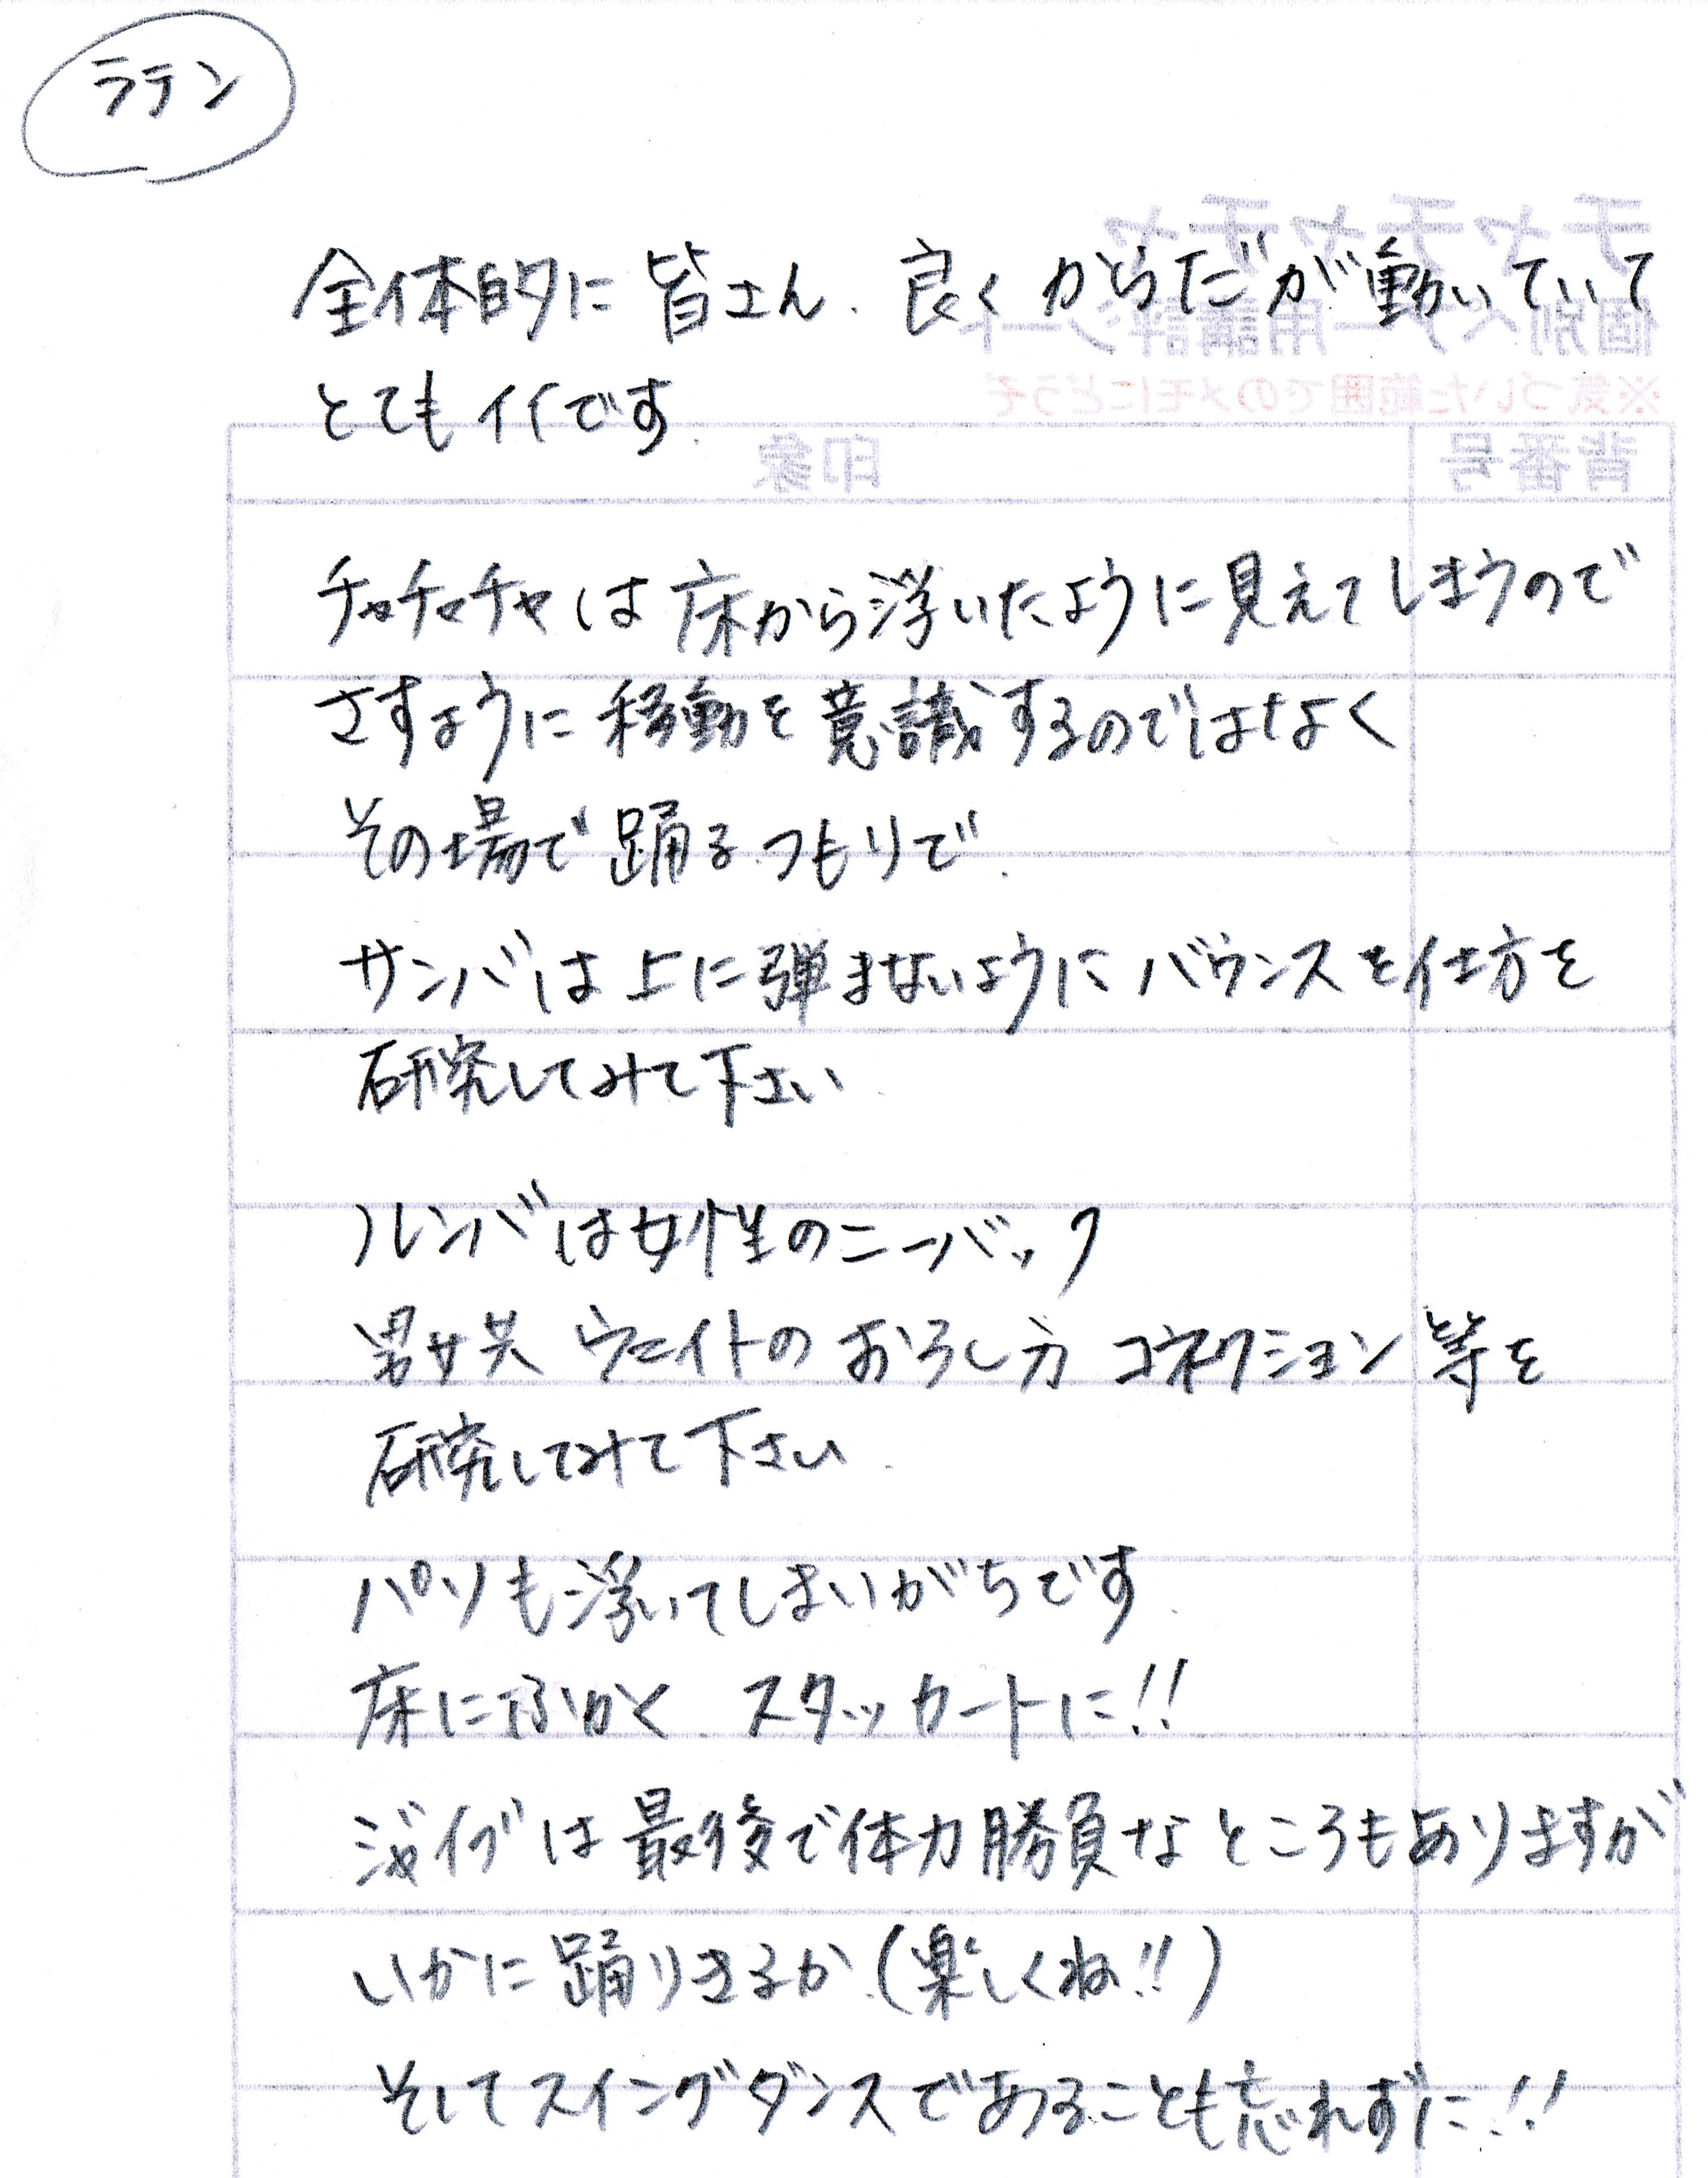 ラテン
全体的に皆さん、良くからだが動いていて
とてもイイです.
チャチャチャは床から浮いたように見えてしまうので
さすように移動を意識するのではなく
その場で踊るつもりで.
サンバは上に弾まないようにバウンスを仕方を
研究してみて下さい
ルンバは女性のニーバック
男女共 ウェイトのおろし方 コネクション等を
研究してみて下さい.
パソも浮いてしまいがちです.
床にふかく スタッカートに!!
ジャイブは最後で体力勝負なところもありますが
いかに踊りきるか.(楽しくね!!)
そしてスイングダンスであることも忘れずに!!
チャチャチャ
個別ヘアー用講評シート
※気づいた範囲でのメモにどうぞ
背番号 印象